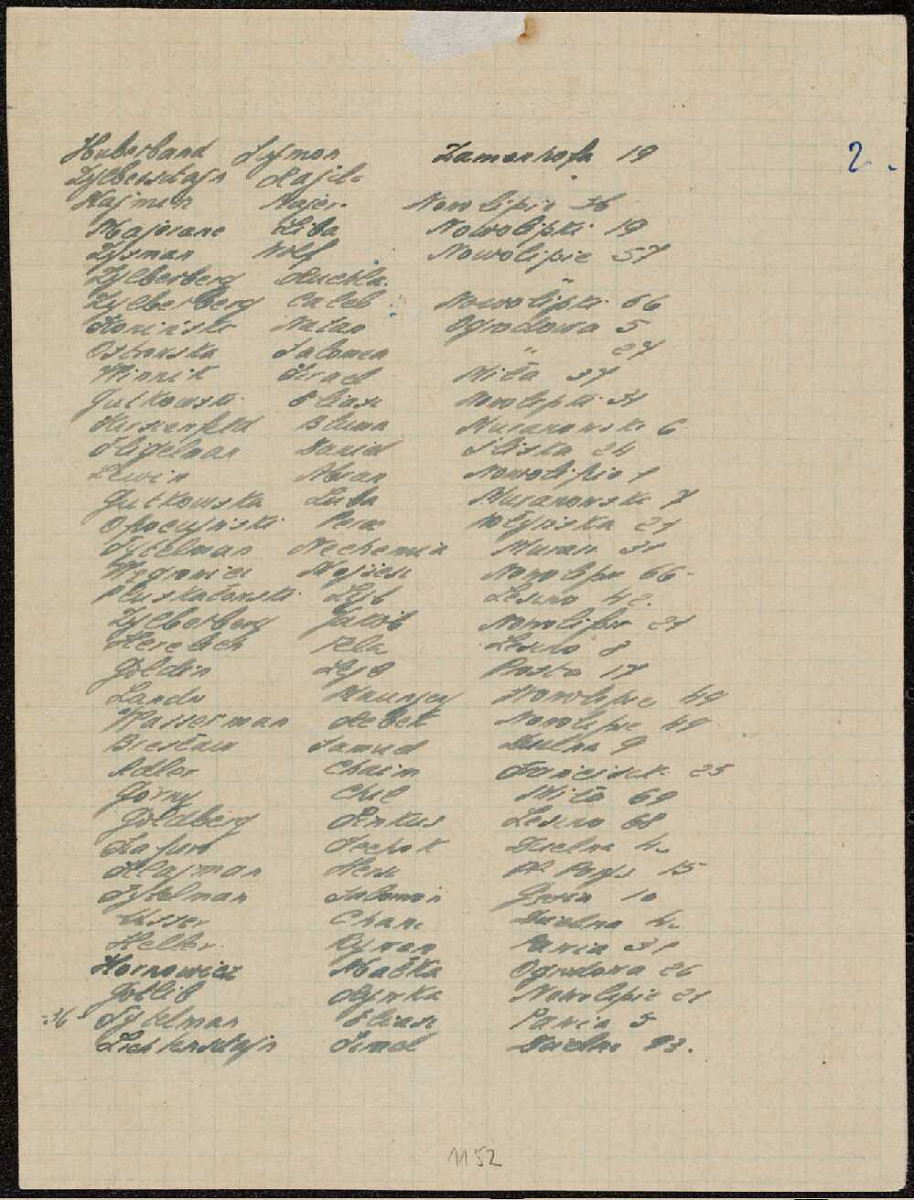 Huberband Szymon Zamenhofa 19
2.
Zylbersztajn
Najman Majer Nowolipie 36
Majeranc Liba Nowolipki 19
Zysman Wolf Nowolipie 57
Zylberberg Ruchla
Zylberberg Caleb Nowolipki 66
Koniński Natan Ogrodowa 5
Ostrowska Salomea " 27
Winnik Izrael Miła 37
Gutkowski Eliasz Nowolipki 31
Hirszenfeld Bluma Muranowska 6
Fligelman Dawid Śliska 24
Lewin Abram Nowolipie 1
Gutkowska Luba Muranowska 7
Opoczyński Perec Wołyńska 21
Tytelman Nechemia Muran
Węgrowicz Mojżesz Nowolipie 66
Pluskałowski Lejb Leszno 42
Zylberberg Jakób Nowolipie 21
Hela Leszno 8
Goldin Lejb Prosta 17
Landu Maurycy Nowolipie 49
Wasserman Rebek Nowolipie 49
Bresław Samuel Dzielna 9
Adler Chaim Franciszk. 25
Górny Chil Miła 69
Goldberg Pinkus Leszno 68
Dzielna 4
Klajman Hersz 15
Tytelman Salomon 10
Chana Dzielna 4
Heller Rywen Pawia 31
Hornowicz Maćka Ogrodowa 26
Gotlib Rywka Nowolipie 21
36 Tytelman Eliasz Pawia 5
Lichtensztajn Izrael Dzielna 73.
1152